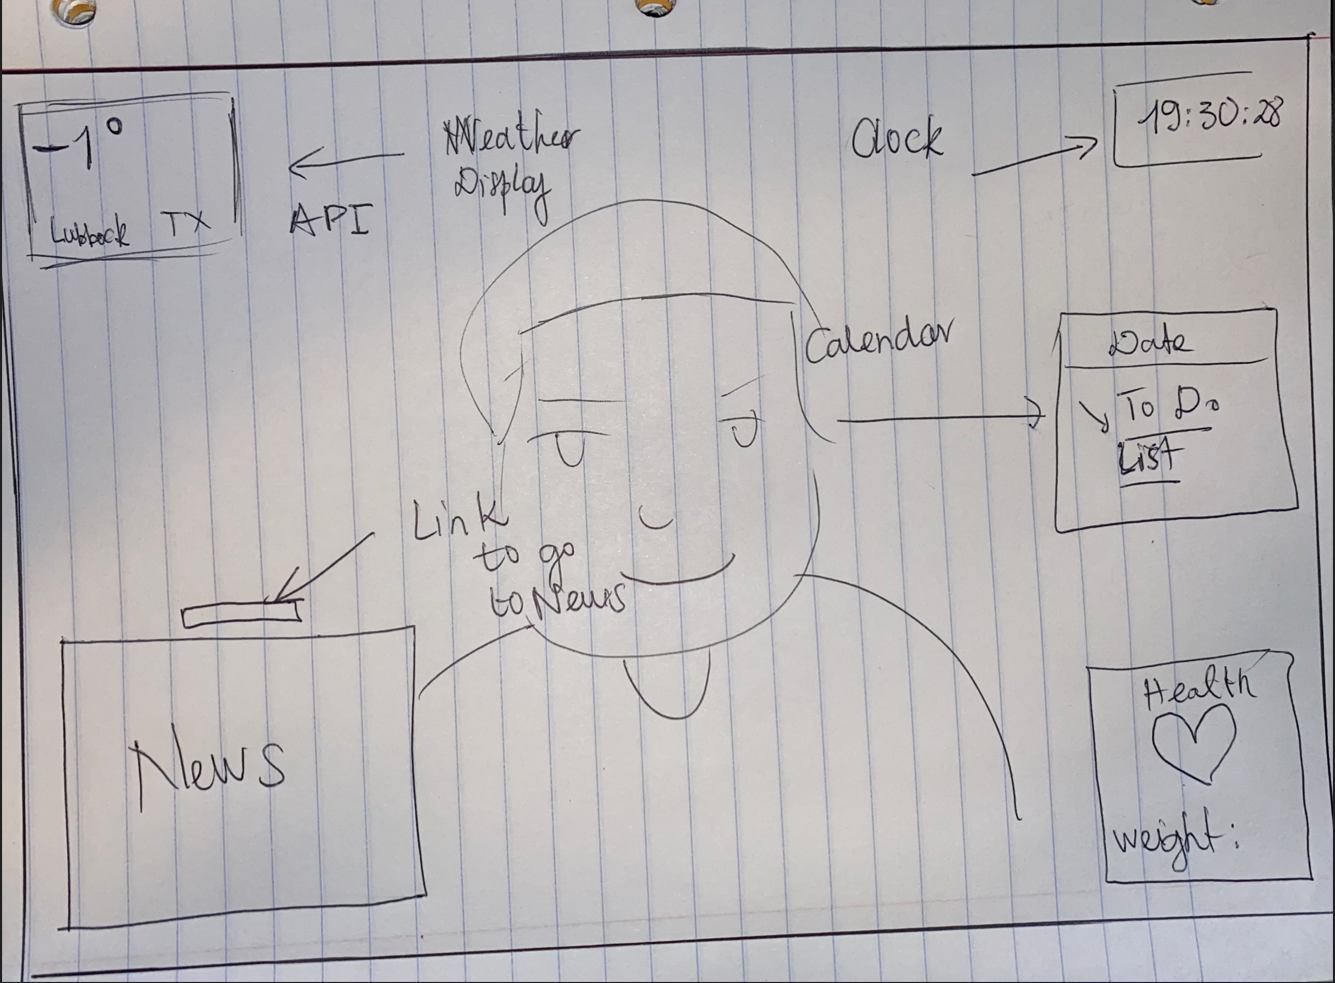 -1°
Lubbock TX
Weather
Display
API
Clock
19:30:28
Calendar
Date
To Do
List
Link
to go
to News
News
Health
weight: